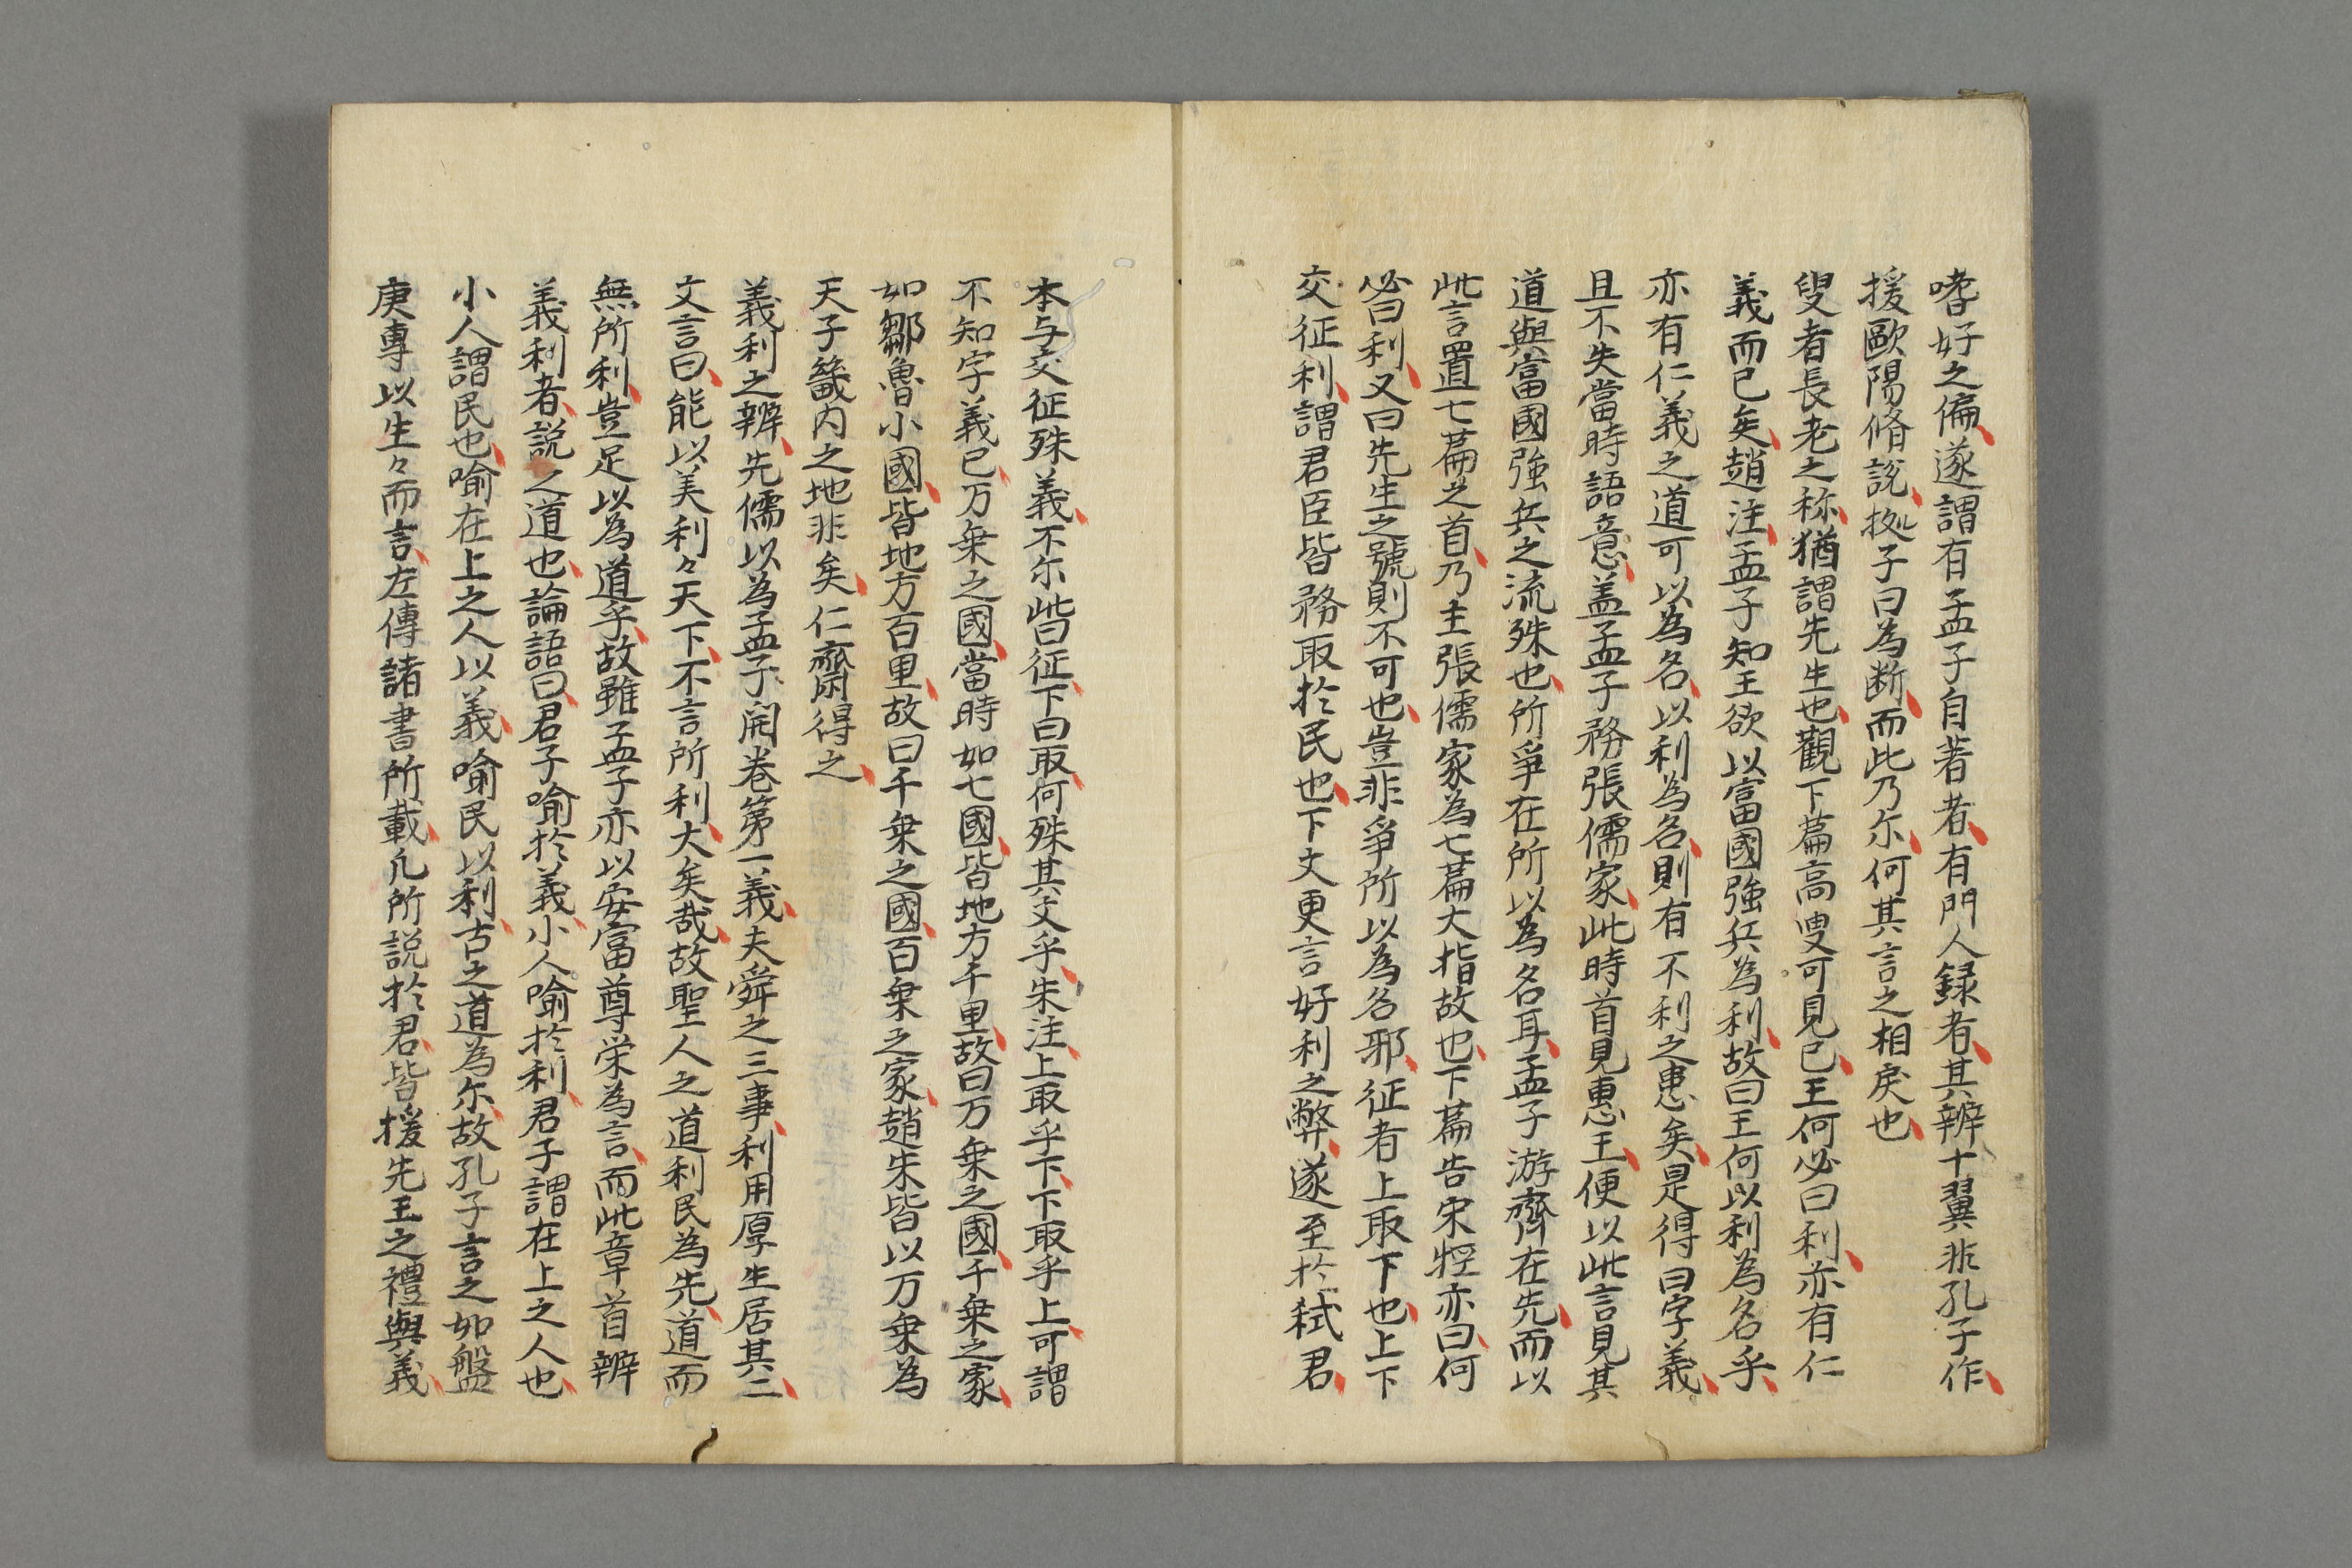 嗜好之偏遂謂有孟子自著者有門人録者其辨十翼非孔子作
援歐陽脩説拠子曰為断而此乃尓何其言之相戻也
叟者長老之称猶謂先生也觀下篇高叟可見已王何必曰利亦有仁
義而已矣趙注孟子知王欲以富國強兵為利故曰王何以利為名乎
亦有仁義之道可以為名以利為名則有不利之患矣是得曰字義
且不失當時語意盖孟子務張儒家此時首見惠王便以此言見其
道與富國強兵之流殊也所爭在所以為名耳孟子游齊在先而以
此言置七篇之首乃主張儒家為七篇大指故也下篇告宋牼亦曰何
必曰利又曰先生之號則不可也豈非爭所以為名邪征者上取下也上下
交征利謂君臣皆務取於民也下文更言好利之弊遂至於弒君
本与交征殊義不尓皆曰征下曰取何殊其文乎朱注上取乎下下取乎上可謂
不知字義已万乗之國當時如七國皆地方千里故曰万乗之國千乗之家
如鄒魯小國皆地方百里故曰千乗之國百乗之家趙朱皆以万乗為
天子畿内之地非矣仁齋得之
義利之辨先儒以為孟子開巻第一義夫舜之三事利用厚生居其二
文言曰能以美利々天下不言所利大矣哉故聖人之道利民為先道而
無所利豈足以為道乎故雖孟子亦以安富尊栄為言而此章首辨
義利者説之道也論語曰君子喻於義小人喻於利君子謂在上之人也
小人謂民也喻在上之人以義喻民以利古之道為尓故孔子言之如盤
庚專以生々而言左傳諸書所載凡所説於君皆援先王之禮與義